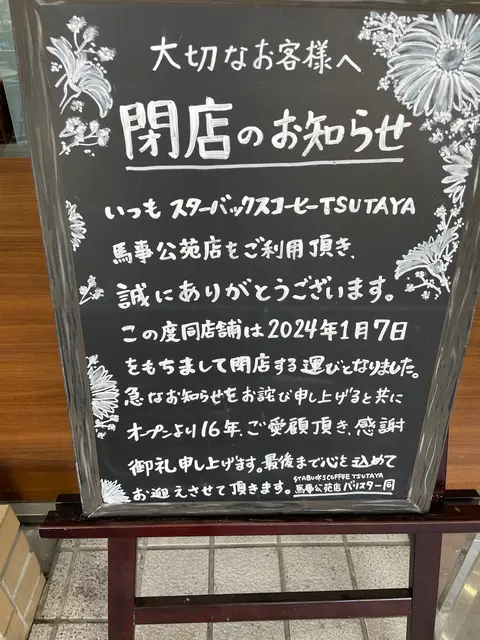 大切なお客様へ
閉店のお知らせ
いつも スターバックスコーヒーTSUTAYA
馬事公苑店をご利用頂き、
誠にありがとうございます。
この度同店舗は2024年1月7日
をもちまして閉店する運びとなりました。
急なお知らせをお詫び申し上げると共に
オープンより16年、ご愛顧頂き、感謝
御礼申し上げます。最後まで心を込めて
お迎えさせて頂きます。
STARBUCKS COFFEE TSUTAYA
馬事公苑店 バリスター同